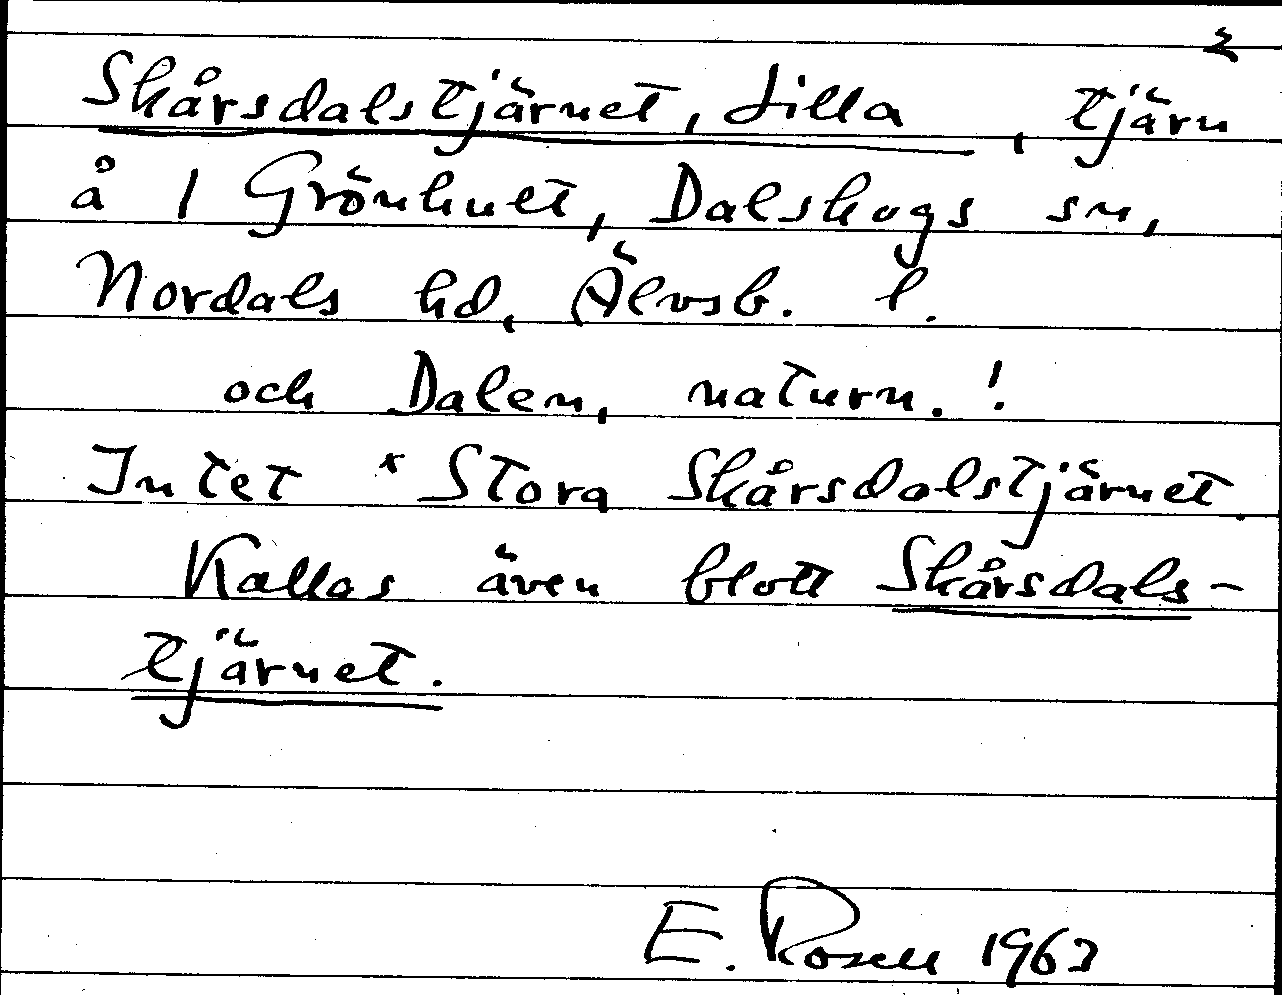 2
Skårsdalstjärnet, Lilla, tjärn
å 1 Grönhult, Dalskogs sn,
Nordals hd, Älvsb. l.
och Dalen, naturn. !
Intet * Stora Skårsdalstjärnet.
Kallas även blott Skårsdals-
tjärnet.
E. Rosell 1963